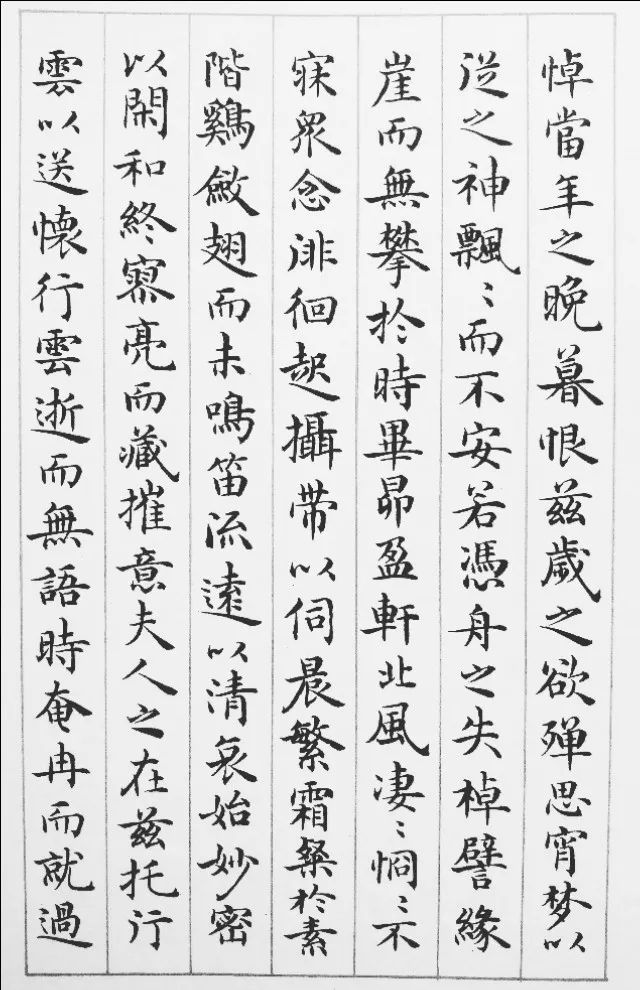 悼當年之晚暮恨茲歲之欲殫思宵梦以
從之神飄〻而不安若憑舟之失棹譬緣
崖而無攀於時畢昴盈軒北風凄〻惘〻不
寐衆念徘徊起攝带以伺晨繁霜粲於素
階鷄斂翅而未鳴笛流遠以清哀始妙密
以閑和終寥亮而藏摧意夫人之在茲托行
雲以送懷行雲逝而無語時奄冉而就過